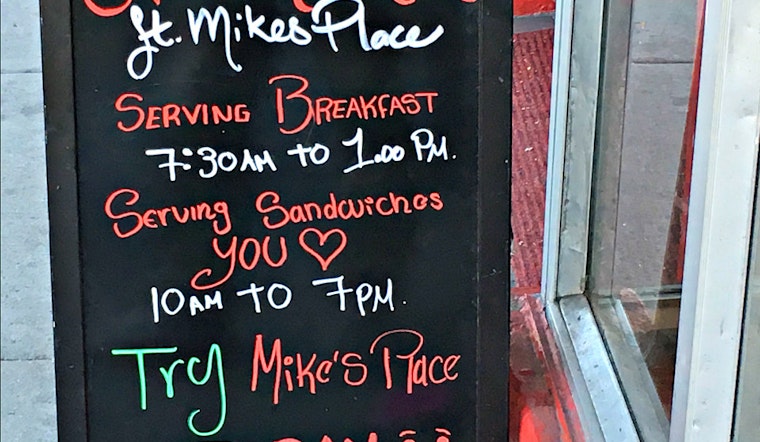 ft. Mikes Place
SERVING BREAKFAST
7:30AM TO 1.00 PM.
Serving Sandwiches
YOU ♡
10AM TO 7PM.
Try Mike's Place